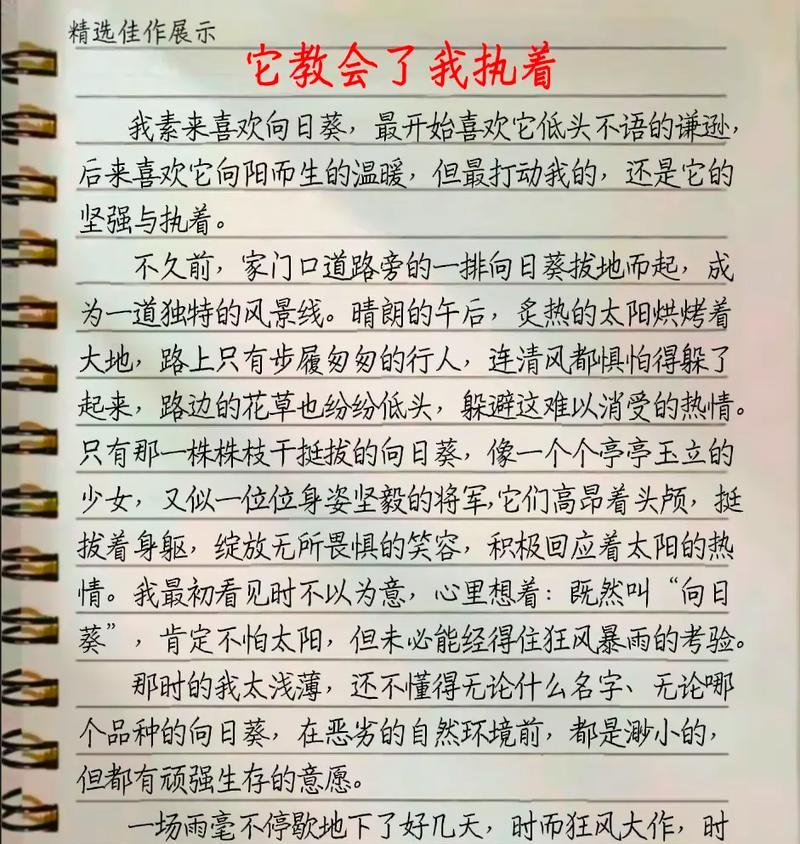 精选佳作展示
它教会了我执着
我素来喜欢向日葵，最开始喜欢它低头不语的谦逊，
后来喜欢它向阳而生的温暖，但最打动我的，还是它的
坚强与执着。
不久前，家门口道路旁的一排向日葵拔地而起，成
为一道独特的风景线。晴朗的午后，炙热的太阳烘烤着
大地，路上只有步履匆匆的行人，连清风都惧怕得躲了
起来，路边的花草也纷纷低头，躲避这难以消受的热情。
只有那一株株枝干挺拔的向日葵，像一个个亭亭玉立的
少女，又似一位位身姿坚毅的将军，它们高昂着头颅，挺
拔着身躯，绽放无所畏惧的笑容，积极回应着太阳的热
情。我最初看见时不以为意，心里想着：既然叫“向日
葵”，肯定不怕太阳，但未必能经得住狂风暴雨的考验。
那时的我太浅薄，还不懂得无论什么名字、无论哪
个品种的向日葵，在恶劣的自然环境前，都是渺小的，
但都有顽强生存的意愿。
一场雨毫不停歇地下了好几天，时而狂风大作，时